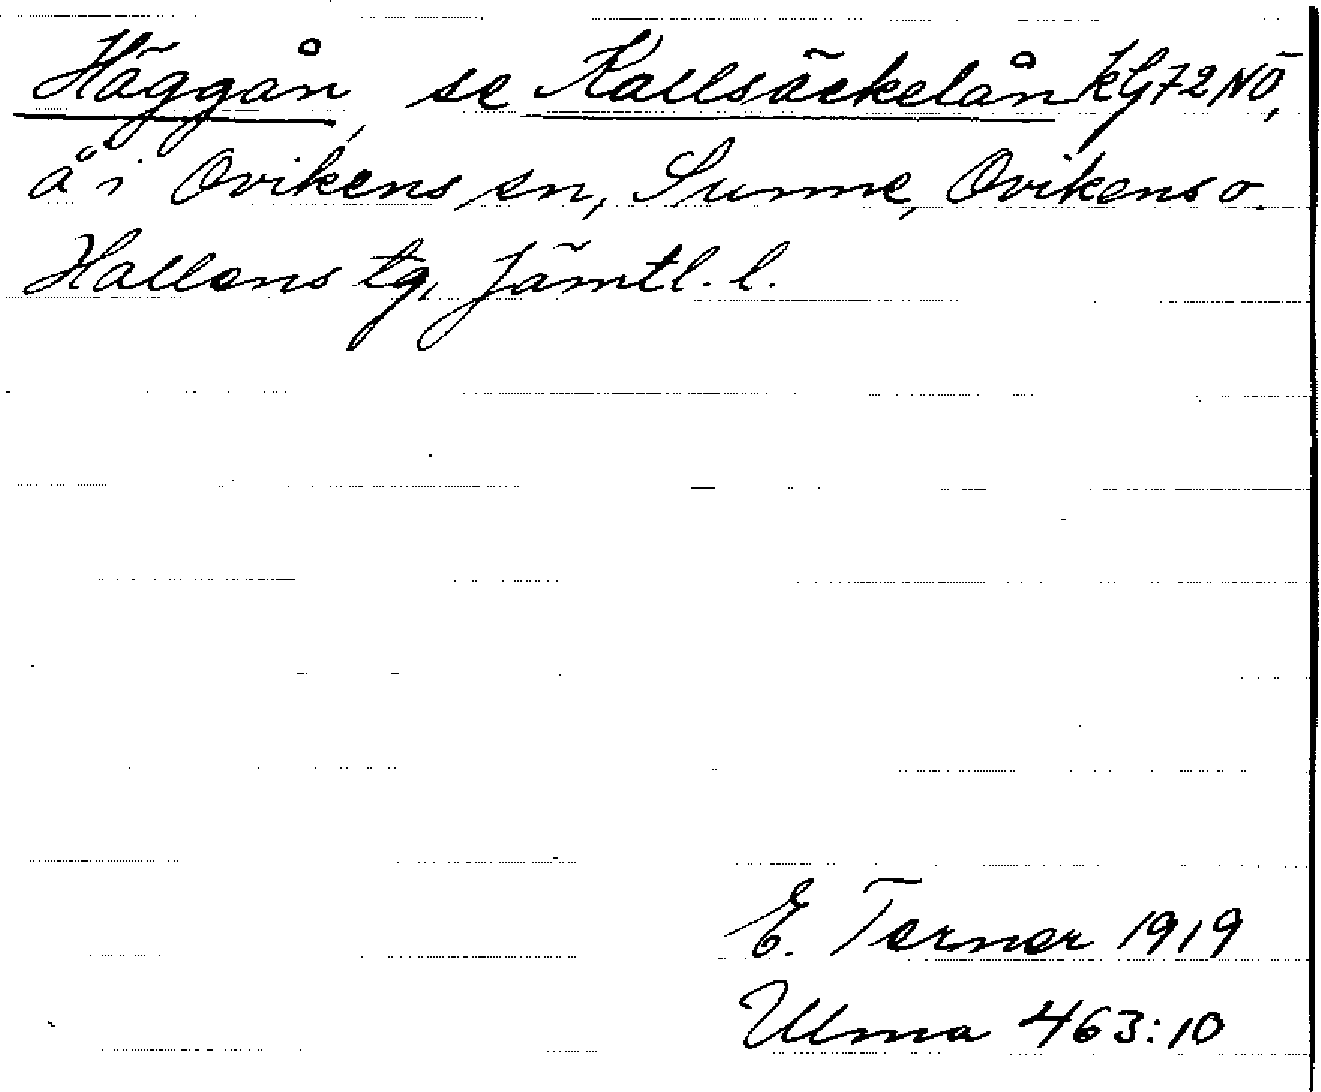 Häggån, se Kallsäckelån kG72NÖ,
å i Ovikens sn, Sunne, Ovikens o.
Hallens tg, Jämtl. l.
E. Terner 1919
Ulma 463:10